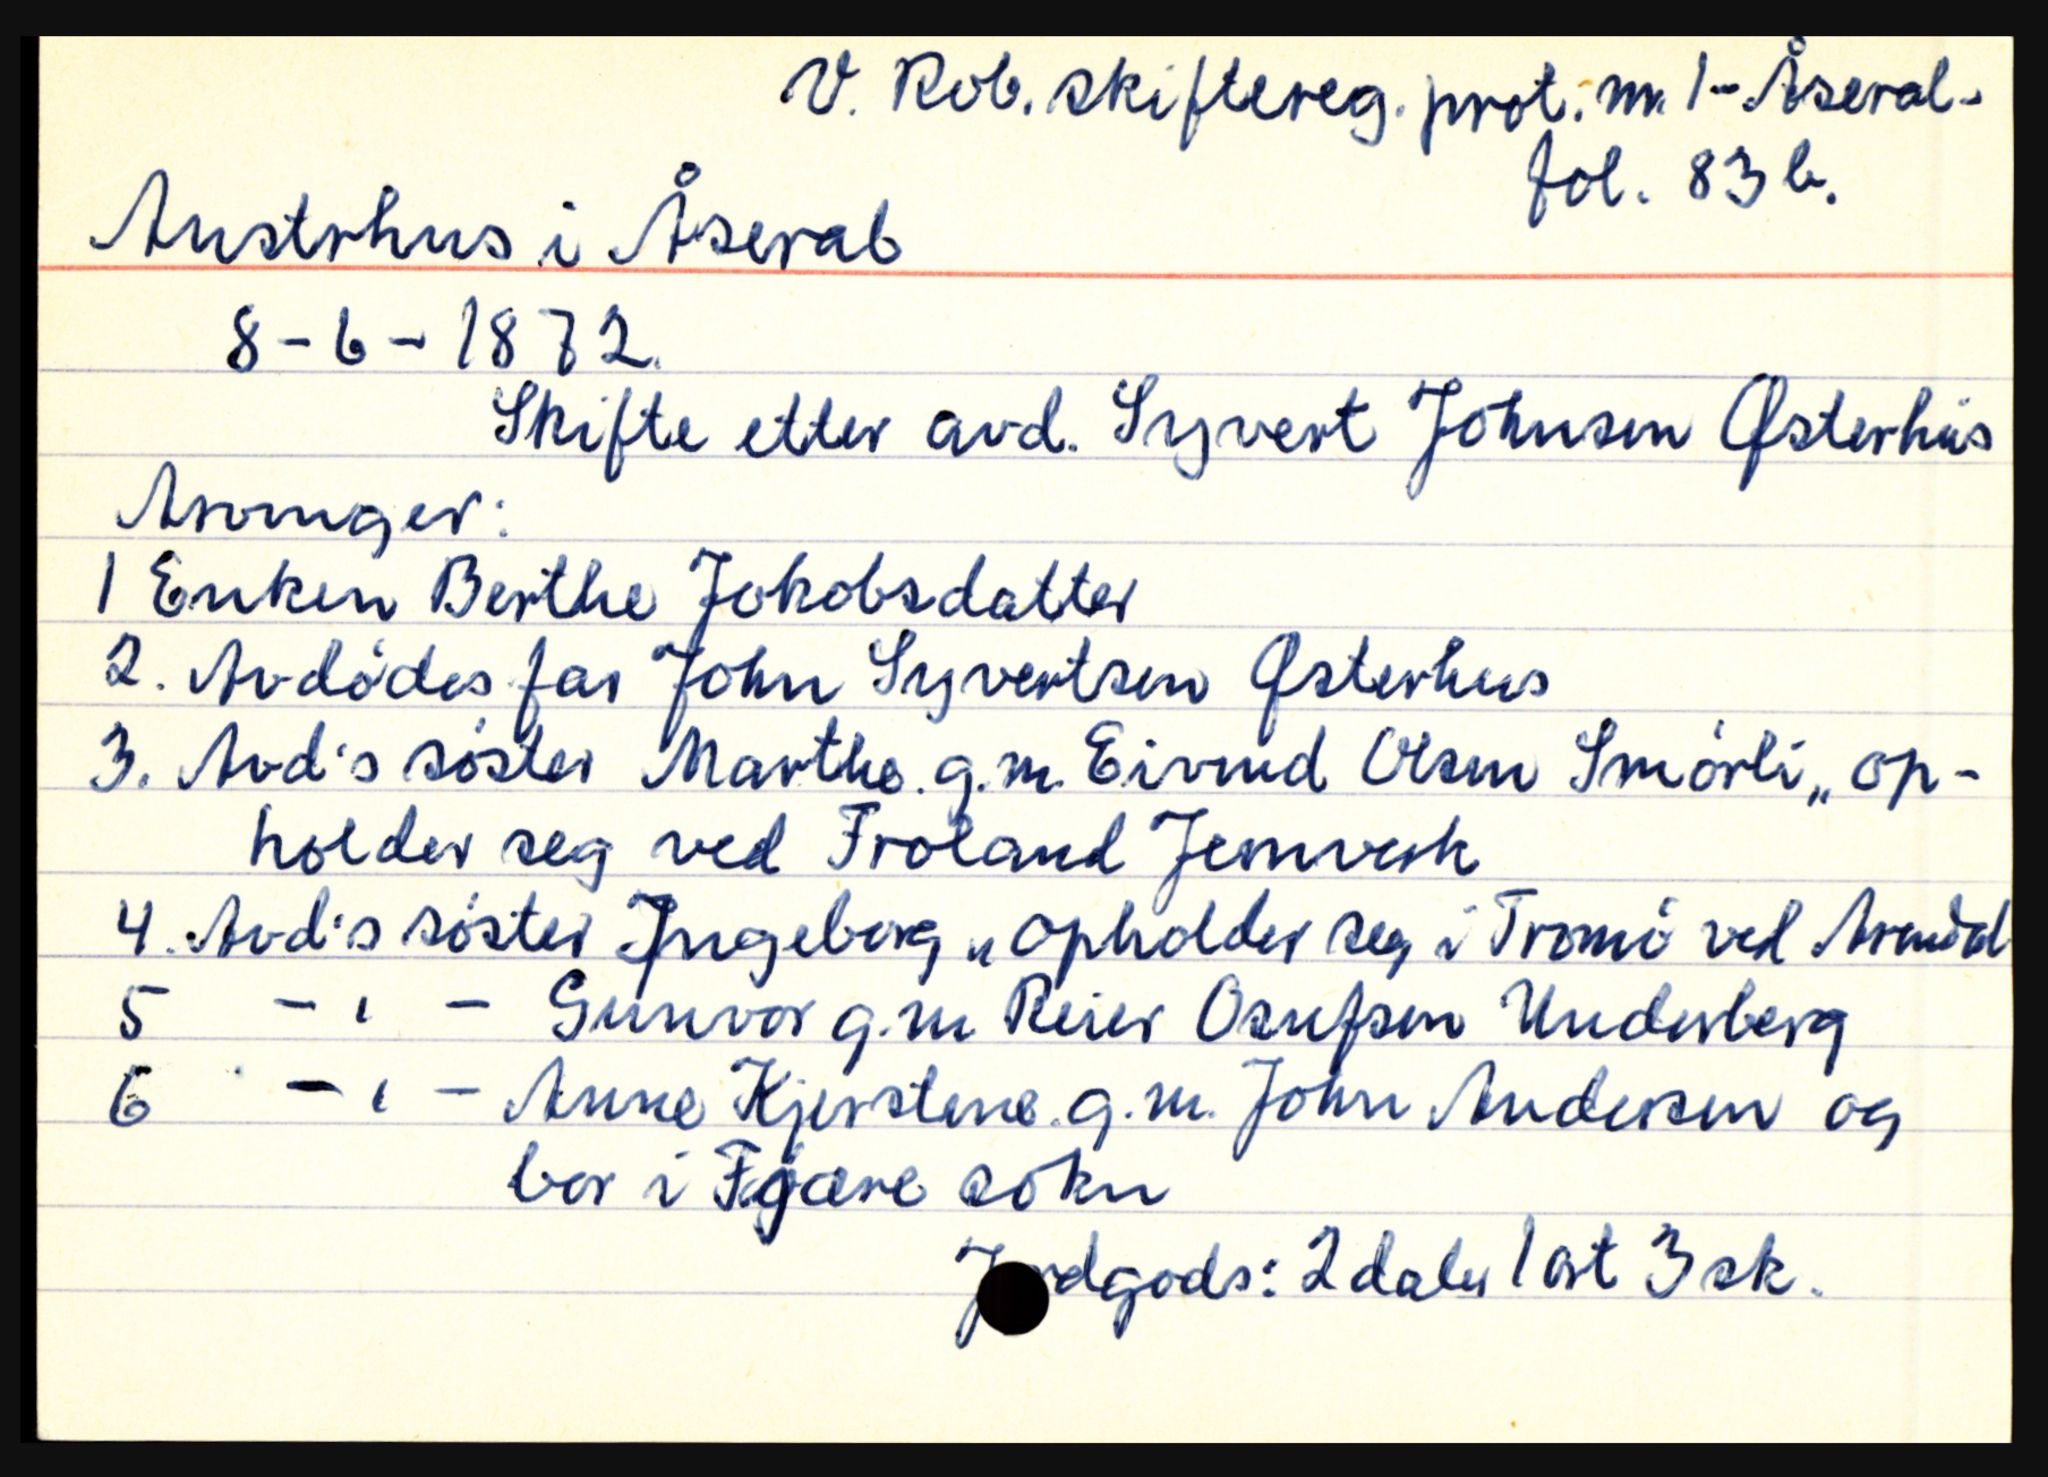 V. Rob. skiftereg. prot. nr. 1 - Åseral -
fol. 83 b.
Austrhus i Åseral
8 - 6 - 1872.
Skifte etter avd. Syvert Johnsen Østerhus
Arvinger:
1 Enken Berthe Jokobsdatter
2. Avdødes far John Syvertsen Østerhus
3. Avd's søster Marthe g.m. Eivind Olsen Smørli „ op-
holder seg ved Froland Jernverk
4. Avd's søster Ingeborg „ opholder seg i Tromö ved Arendal
5 - ‚ - Gunvor g.m. Reier Osufsen Underberg
6 - ‚ - Anne Kjerstene g.m. John Andersen og
bor i Fjære sokn
Jordgods: 2 daler 1 ort 3 sk.